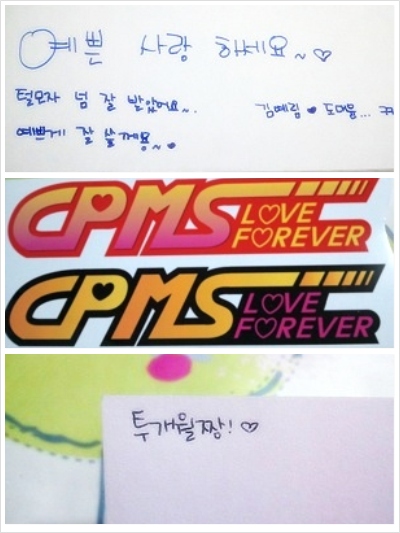 예쁜 사랑 하세요~♡
털모자 넘 잘 받았어요~.
김예림 ♥ 도대윤...
예쁘게 잘 쓸게용~♥
CPMS LOVE FOREVER
CPMS LOVE FOREVER
투개월짱!♡